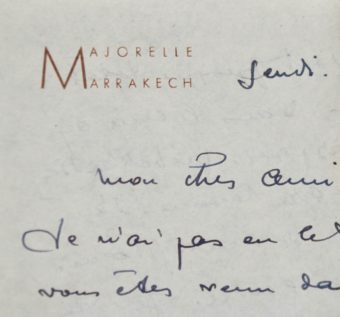 MAJORELLE
MARRAKECH
Jeudi.
mon cher ami
Je n'ai pas eu le
vous êtes venu da